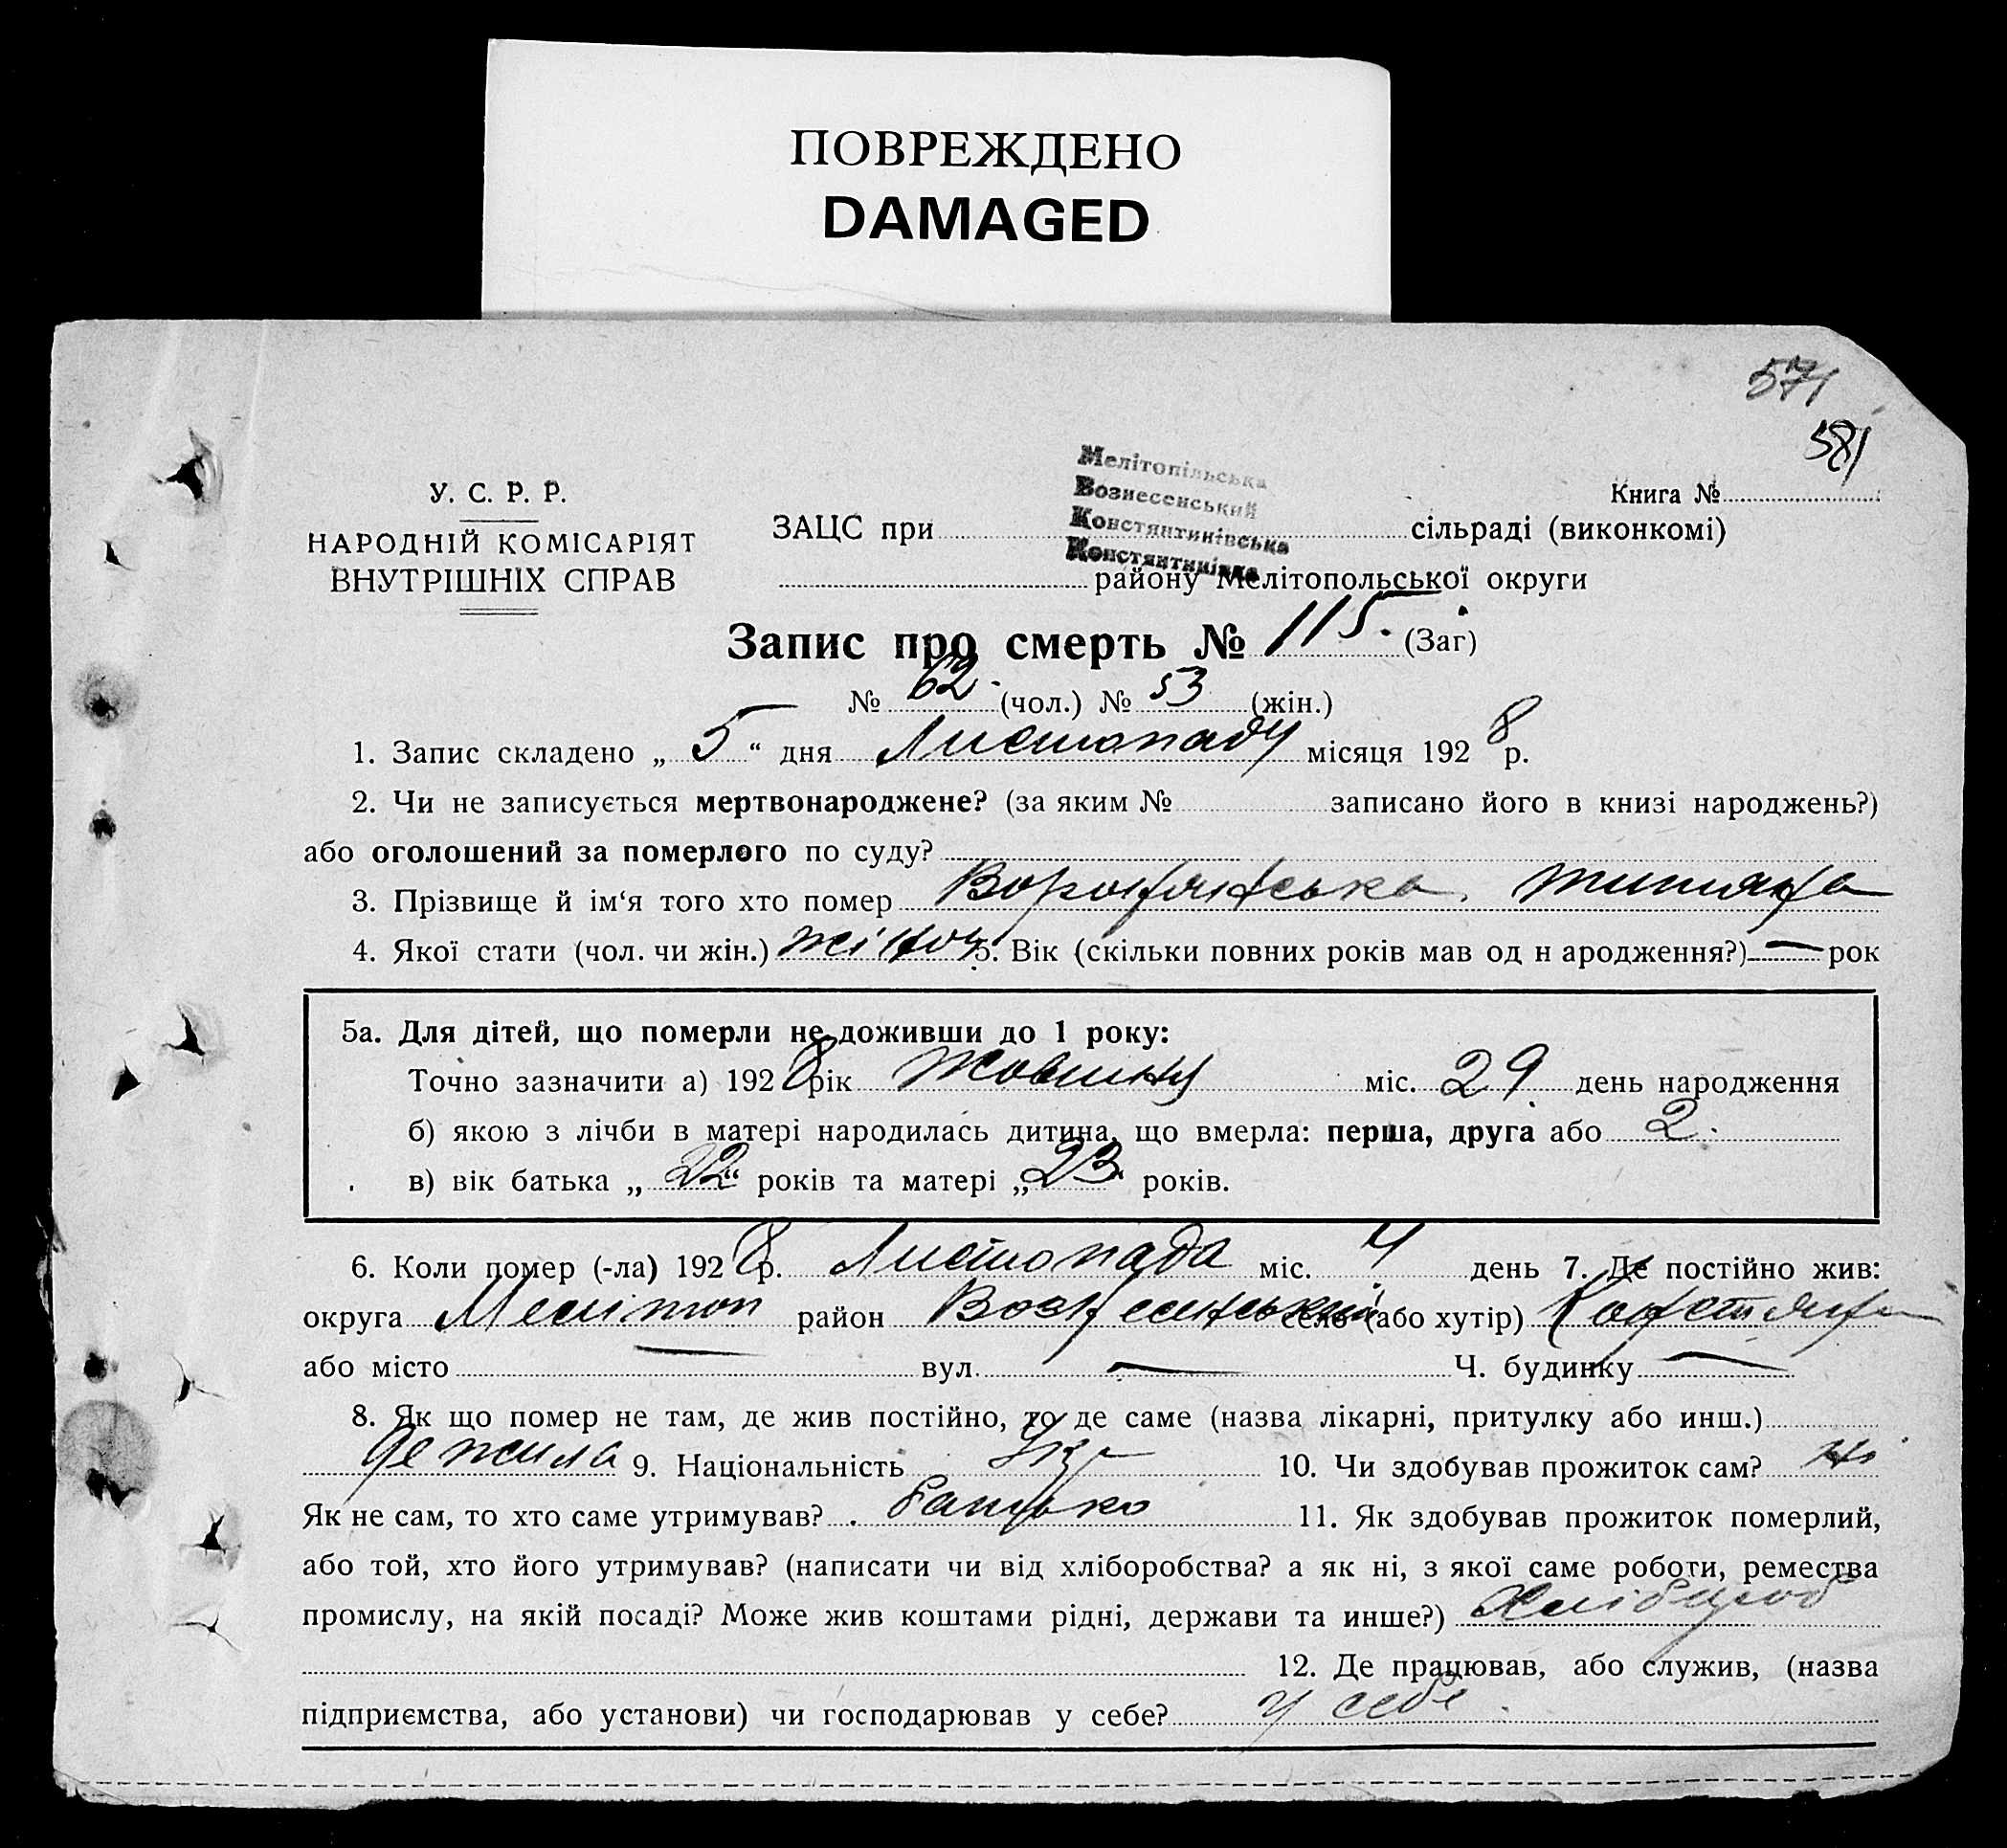 ПОВРЕЖДЕНО
DAMAGED
571
581
Мелітопільська
Вознесенський
Константинівська
Константинівка
У. С. Р. Р.
НАРОДНІЙ КОМІСАРІЯТ
ВНУТРІШНІХ СПРАВ
Книга №
ЗАЦС при сільраді (виконкомі)
району Мелітопольської округи
Запис про смерть № 115. (Заг)
№ 62. (чол.) № 53 (жін.)
1. Запис складено „ 5 “ дня Листопаду місяця 1928 р.
2. Чи не записується мертвонароджене? (за яким № записано його в книзі народжень?)
або оголошений за померлого по суду?
3. Прізвище й ім‘я того хто помер
4. Якої стати (чол. чи жін.) жіноч 5. Вік (скільки повних років мав од н ародження?) — рок
5а. Для дітей, що померли не доживши до 1 року:
Точно зазначити а) 1928 рік Жовтня міс. 29 день народження
б) якою з лічби в матері народилась дитина, що вмерла: перша, друга або 2.
в) вік батька „ 22 “ років та матері „ 23 “ років.
6. Коли помер (-ла) 1928 р. Листопада міс. 4 день 7. Де постійно жив:
округа Мелітоп район Вознесенський село (або хутір) Констянт
або місто — вул. — Ч. будинку —
8. Як що помер не там, де жив постійно, то де саме (назва лікарні, притулку або инш.)
де жила 9. Національність Укр 10. Чи здобував прожиток сам? ні
Як не сам, то хто саме утримував? батько 11. Як здобував прожиток померлий,
або той, хто його утримував? (написати чи від хліборобства? а як ні, з якої саме роботи, ремества
промислу, на якій посаді? Може жив коштами рідні, держави та инше?) Хлібороб
12. Де працював, або служив, (назва
підприємства, або установи) чи господарював у себе? у себе